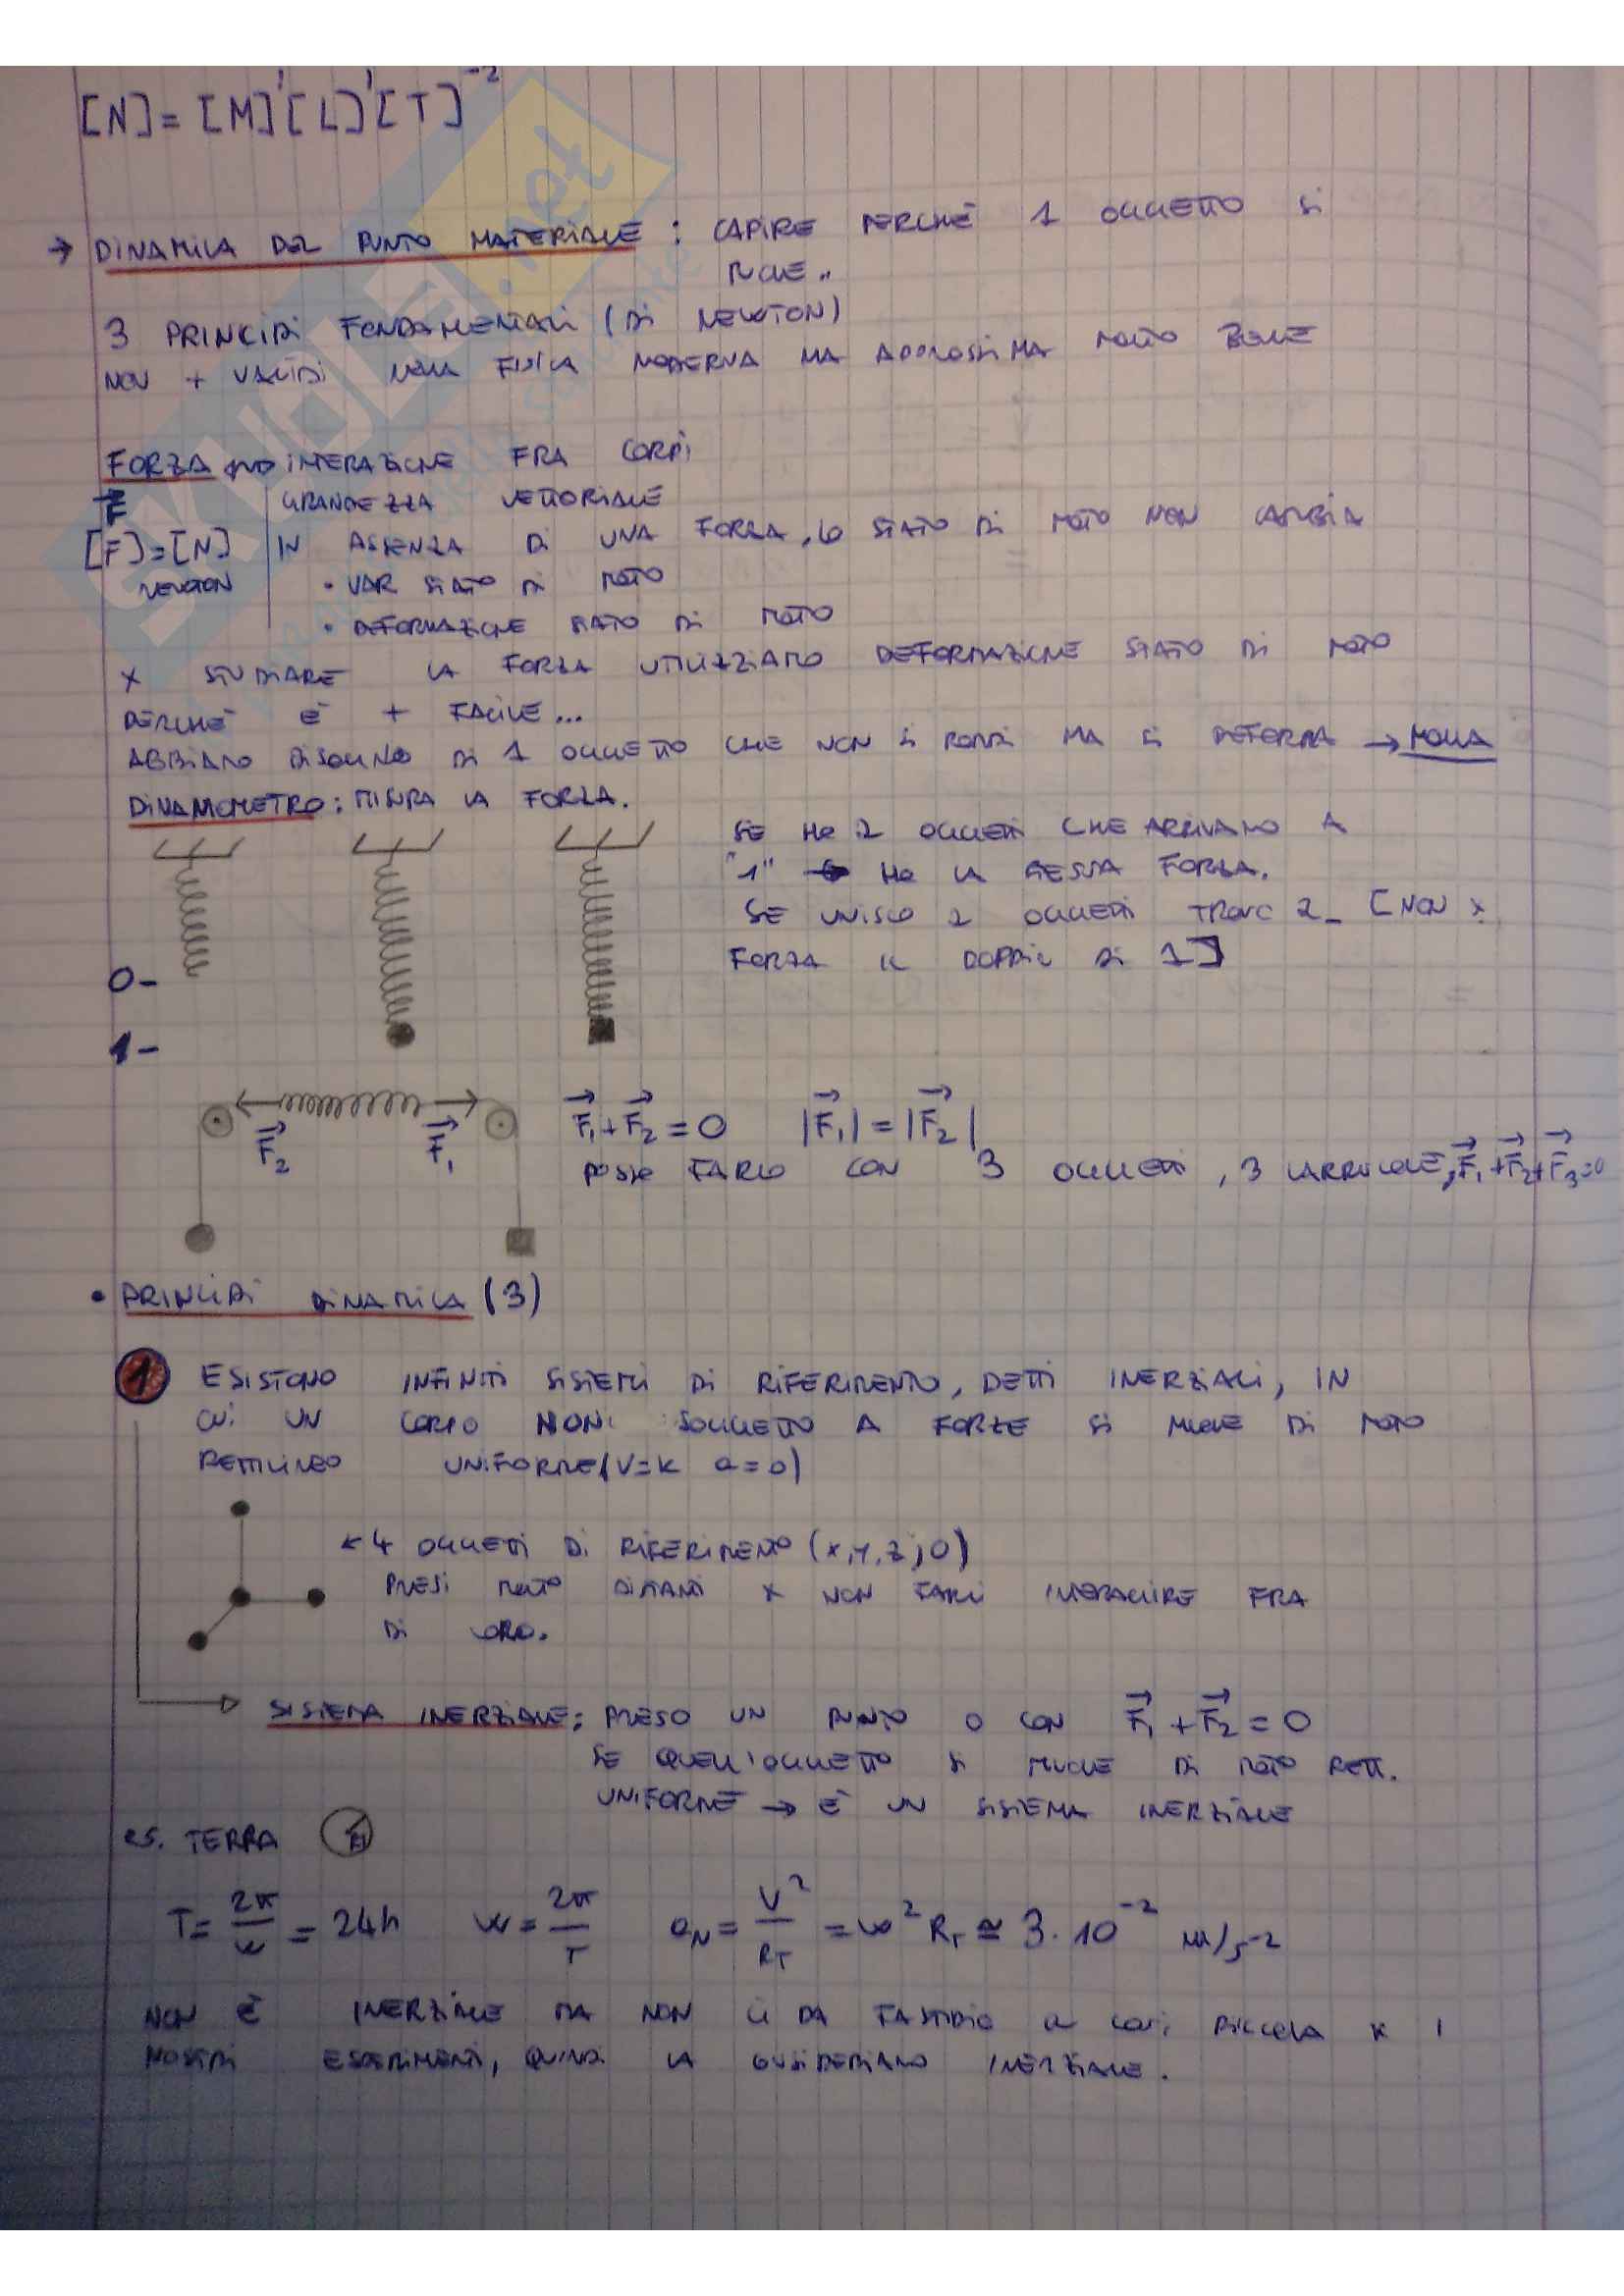 [N] = [M]¹[L]¹[T]⁻²
→ DINAMICA DEL PUNTO MATERIALE : CAPIRE PERCHÈ 1 OGGETTO SI
MUOVE..
3 PRINCIPI FONDAMENTALI (DI NEWTON)
NON + VALIDI NELLA FISICA MODERNA MA APPROSSIMA MOLTO BENE
FORZA INTERAZIONE FRA CORPI
F⃗ GRANDEZZA VETTORIALE
[F]=[N] IN ASSENZA DI UNA FORZA, LO STATO DI MOTO NON CAMBIA
NEWTON • VAR STATO DI MOTO
• DEFORMAZIONE STATO DI MOTO
X STUDIARE LA FORZA UTILIZZIAMO DEFORMAZIONE STATO DI MOTO
PERCHÈ È + FACILE...
ABBIAMO BISOGNO DI 1 OGGETTO CHE NON SI ROMPI MA SI DEFORMA → MOLLA
DINAMOMETRO: MISURA LA FORZA.
SE HO 2 OGGETTI CHE ARRIVANO A
"1" HO LA STESSA FORZA.
SE UNISCO 2 OGGETTI TROVO 2_ [NON X
FORZA IL DOPPIO DI 1]
0-
1-
F⃗₁+F⃗₂=0 |F⃗₁|=|F⃗₂|
F⃗₂ F⃗₁
POSSO FARLO CON 3 OGGETTI, 3 CARRUCOLE, F⃗₁+F⃗₂+F⃗₃=0
• PRINCIPI DINAMICA (3)
1 ESISTONO INFINITI SISTEMI DI RIFERIMENTO, DETTI INERZIALI, IN
CUI UN CORPO NON SOGGETTO A FORZE SI MUOVE DI MOTO
RETTILINEO UNIFORME (V=K a=0)
4 OGGETTI DI RIFERIMENTO (X,Y,Z;O)
PRESI MOLTO DISTANTI X NON FARLI INTERAGIRE FRA
DI LORO.
SISTEMA INERZIALE: PRESO UN PUNTO O CON F⃗₁+F⃗₂=0
SE QUELL'OGGETTO SI MUOVE DI MOTO RETT.
UNIFORME → È UN SISTEMA INERZIALE
es. TERRA
T= 2π/ω = 24h ω = 2π/T a_N = V²/R_T = ω² R_T ≅ 3·10⁻² m/s⁻²
NON È INERZIALE MA NON CI DA FASTIDIO a così PICCOLA X I
NOSTRI ESPERIMENTI, QUINDI LA CONSIDERIAMO INERZIALE.